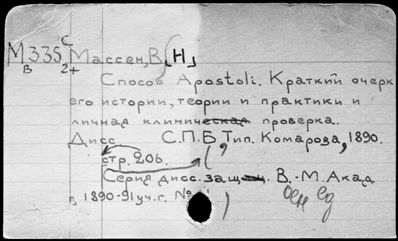 М335 С Массен, В. [Н]
В 2+
Способ Apostoli. Краткий очерк
его истории, теории и практики и
личная клиническая проверка.
Дисс. С.П.Б, Тип. Комарова, 1890.
стр. 206.
(Серия дисс. защ. В.-М. Акад
г, 1890-91 уч. г. №